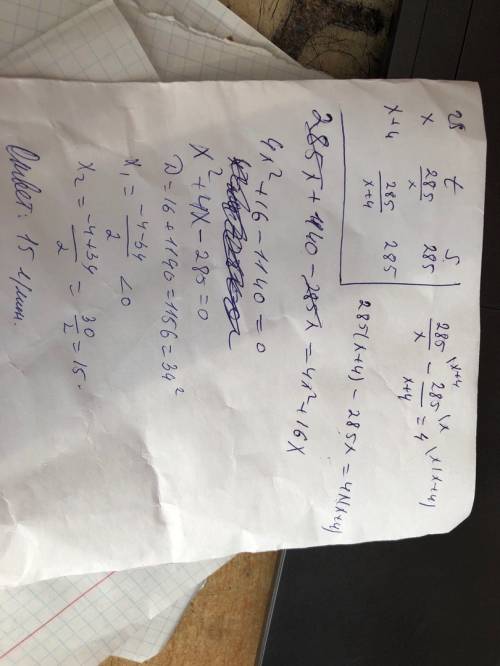 v t S
x 285/x 285
x+4 285/(x+4) 285
285/x \x+4 - 285/(x+4) \x = 4 \x(x+4)
285(x+4) - 285x = 4x(x+4)
285x + 1140 - 285x = 4x² + 16x
4x² + 16 - 1140 = 0
x² + 4x - 285 = 0
D = 16 + 1140 = 1156 = 34²
x₁ = (-4-34)/2 < 0
x₂ = (-4+34)/2 = 30/2 = 15.
Ответ: 15 л/мин.